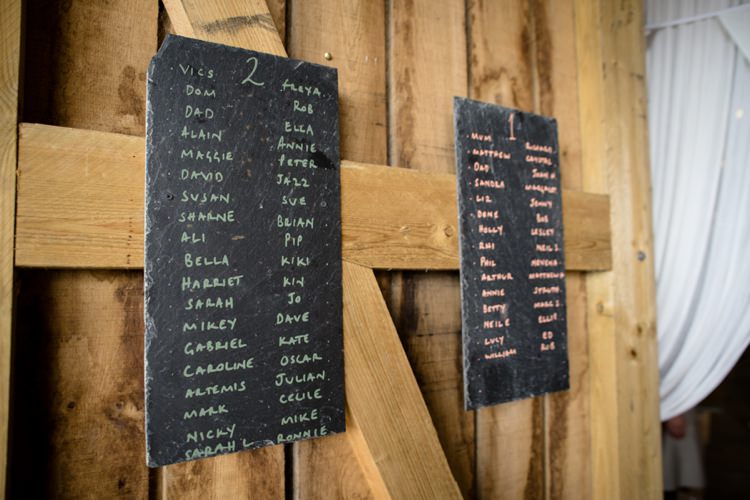 2
VICS FREYA
DOM ROB
DAD ELLA
ALAIN ANNIE
MAGGIE PETER
DAVID JAZZ
SUSAN SUE
SHARNE BRIAN
ALI PIP
BELLA KIKI
HARRIET KIN
SARAH JO
MIKEY DAVE
GABRIEL KATE
CAROLINE OSCAR
ARTEMIS JULIAN
MARK CECILE
NICKY MIKE
SARAH L RONNIE
1
MUM RICHARD
MATTHEW CRYSTAL
DAD JOHN H
SANDRA MARGARET
LIZ JENNY
DENE BOB
HOLLY LESLEY
RHI NEIL S
PHIL
ARTHUR MATTHEW
ANNIE
BETTY MARC S
NEILE ELLIE
LUCY ED
WILLIAM ROB